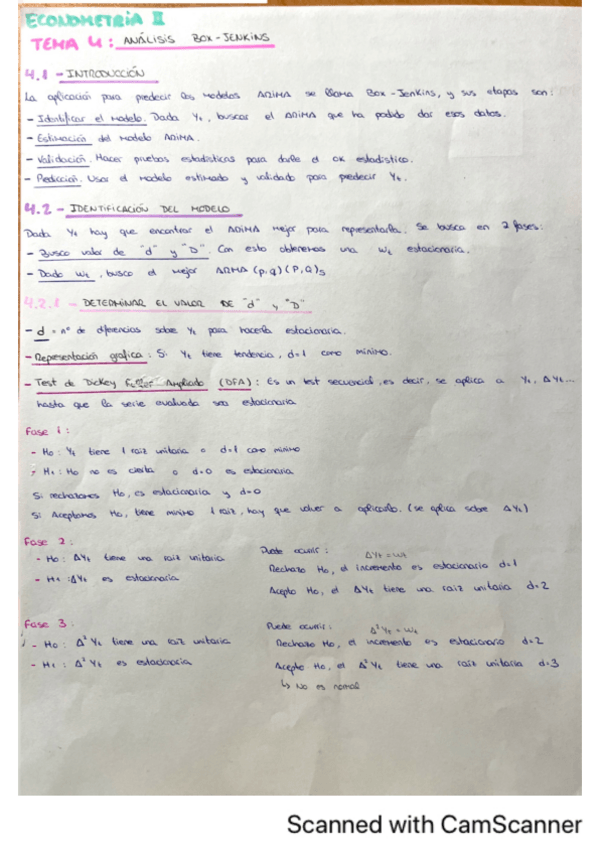 ECONOMETRIA II
TEMA 4: ANÁLISIS BOX-JENKINS
4.1 - INTRODUCCIÓN
La aplicación para predecir los modelos ARIMA se llama Box-Jenkins, y sus etapas son:
- Identificar el modelo. Dada Yt, buscar el ARIMA que ha podido dar esos datos.
- Estimación del modelo ARIMA.
- Validación. Hacer pruebas estadísticas para darle el OK estadístico.
- Predicción. Usar el modelo estimado y validado para predecir Yt.
4.2 - IDENTIFICACIÓN DEL MODELO
Dada Yt hay que encontrar el ARIMA mejor para representarla. Se busca en 2 fases:
- Busco valor de "d" y "D". Con esto obtenemos una Wt estacionaria.
- Dado Wt, busco el mejor ARMA (p,q)(P,Q)s
4.2.1 - DETERMINAR EL VALOR DE "d" y "D"
- d = nº de diferencias sobre Yt para hacerla estacionaria.
- Representación gráfica: Si Yt tiene tendencia, d=1 como mínimo.
- Test de Dickey Fuller Ampliado (DFA): Es un test secuencial, es decir, se aplica a Yt, ΔYt...
hasta que la serie evaluada sea estacionaria
Fase 1:
- H0: Yt tiene 1 raiz unitaria o d=1 como mínimo
- H1: H0 no es cierta o d=0 es estacionaria
Si rechazamos H0, es estacionaria y d=0
Si Aceptamos H0, tiene mínimo 1 raiz, hay que volver a aplicarlo. (se aplica sobre ΔYt)
Fase 2:
- H0: ΔYt tiene una raiz unitaria
- H1: ΔYt es estacionaria
Puede ocurrir: ΔYt = Wt
Rechazo H0, el incremento es estacionario d=1
Acepto H0, el ΔYt tiene una raiz unitaria d=2
Fase 3:
- H0: Δ²Yt tiene una raiz unitaria
- H1: Δ²Yt es estacionaria
Puede ocurrir: Δ²Yt = Wt
Rechazo H0, el incremento es estacionario d=2
Acepto H0, el Δ²Yt tiene una raiz unitaria d=3
↳ No es normal
Scanned with CamScanner